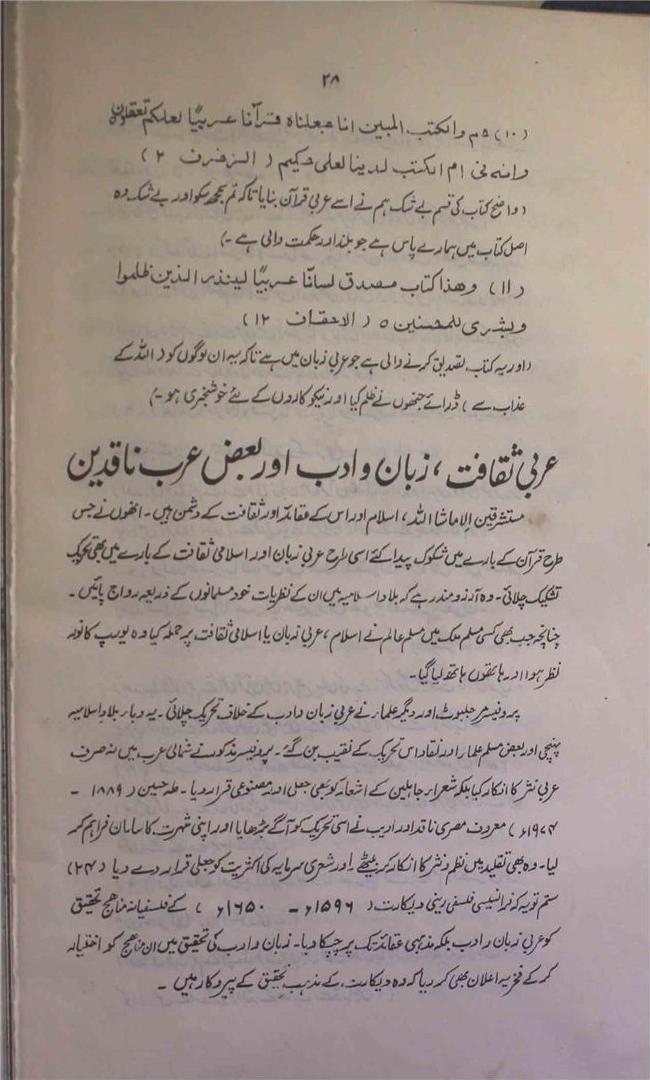 ۲۸
(۱۰) ۵ م والكتب المبین انا جعلناه قرآنا عربیًا لعلکم تعقلون
وانه فی ام الکتب لدینا لعلی حکیم (الزخرف ۲)
(واضح کتاب کی قسم بے شک ہم نے اسے عربی قرآن بنایا تاکہ تم سمجھ سکو اور بے شک وہ
اصل کتاب میں ہمارے پاس ہے جو بلند اور حکمت والی ہے۔)
(۱۱) وهذا کتاب مصدق لسانًا عربیًا لینذر الذین ظلموا
وبشری للمحسنین ٥ (الاحقاف ۱۲)
(اور یہ کتاب تصدیق کرنے والی ہے جو عربی زبان میں ہے تاکہ یہ ان لوگوں کو (اللہ کے
عذاب سے) ڈرائے جنھوں نے ظلم کیا اور نیکو کاروں کے لئے خوشخبری ہو۔)
عربی ثقافت، زبان و ادب اور بعض عرب ناقدین
مستشرقین الا ماشا اللہ، اسلام اور اس کے عقائد اور ثقافت کے دشمن ہیں۔ انھوں نے جس
طرح قرآن کے بارے میں شکوک پیدا کئے اسی طرح عربی زبان اور اسلامی ثقافت کے بارے میں بھی تحریک
تشکیک چلائی۔ وہ آرزو مند رہے کہ بلاد اسلامیہ میں ان کے نظریات خود مسلمانوں کے ذریعہ رواج پائیں۔
چنانچہ جب بھی کسی مسلم ملک میں مسلم عالم نے اسلام، عربی زبان یا اسلامی ثقافت پر حملہ کیا وہ یورپ کا نور
نظر ہوا اور ہاتھوں ہاتھ لیا گیا۔
پروفیسر مرجلیوٹ اور دیگر علمار نے عربی زبان و ادب کے خلاف تحریک چلائی۔ یہ وبار بلاد اسلامیہ
پہنچی اور بعض مسلم علمار اور نقاد اس تحریک کے نقیب بن گئے۔ پروفیسر مذکور نے شمالی عرب میں نہ صرف
عربی نثر کا انکار کیا بلکہ شعرار جاہلین کے اشعار کو بھی جعلی اور مصنوعی قرار دیا۔ طہ حسین (۱۸۸۹ -
۱۹۷۳ء) معروف مصری ناقد اور ادیب نے اسی تحریک کو آگے بڑھایا اور اپنی شہرت کا سامان فراہم کر
لیا۔ وہ بھی تقلید میں نظم و نثر کا انکار کر بیٹھے اور شعری سرمایہ کی اکثریت کو جعلی قرار دے دیا (۲۴)
ستم تو یہ کہ فرانسیسی فلسفی رینی دیکارت (۱۵۹۶ء - ۱۶۵۰ء) کے فلسفیانہ مناہج تحقیق
کو عربی زبان و ادب بلکہ مذہبی عقائد تک پر چپکا دیا۔ زبان و ادب کی تحقیق میں ان مناہج کو اختیار
کر کے فخریہ اعلان بھی کر دیا کہ وہ دیکارت کے مذہب تحقیق کے پیروکار ہیں۔